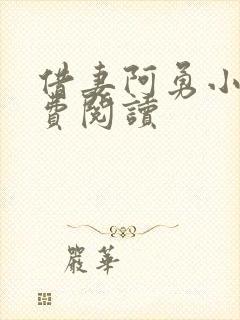 借妻阿勇小
費閱讀
嚴華